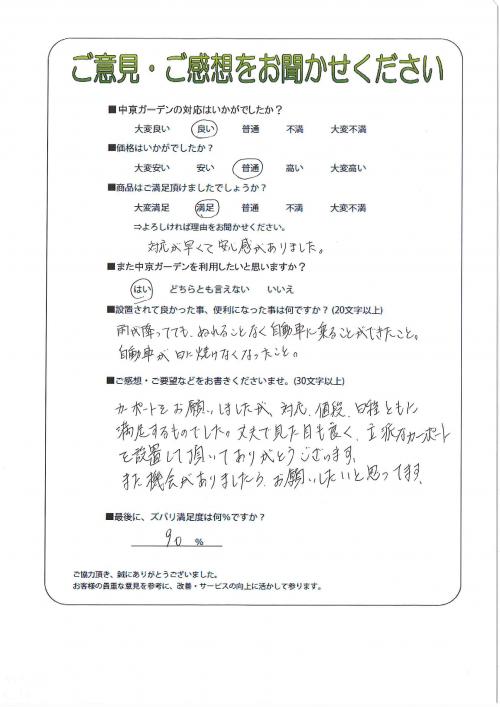 ご意見・ご感想をお聞かせください
■中京ガーデンの対応はいかがでしたか？
大変良い 良い 普通 不満 大変不満
■価格はいかがでしたか？
大変安い 安い 普通 高い 大変高い
■商品はご満足頂けましたでしょうか？
大変満足 満足 普通 不満 大変不満
⇒よろしければ理由をお聞かせください。
対応が早くて安心感がありました。
■また中京ガーデンを利用したいと思いますか？
はい どちらとも言えない いいえ
■設置されて良かった事、便利になった事は何ですか？(20文字以上)
雨が降ってても、ぬれることなく自動車に乗ることができたこと。
自動車が日に焼けなくなったこと。
■ご感想・ご要望などをお書きくださいませ。(30文字以上)
カーポートをお願いしましたが、対応、値段、日程ともに
満足するものでした。丈夫で見た目も良く、立派なカーポート
を設置して頂いてありがとうございます。
また機会がありましたら、お願いしたいと思ってます。
■最後に、ズバリ満足度は何％ですか？
90 ％
ご協力頂き、誠にありがとうございました。
お客様の貴重な意見を参考に、改善・サービスの向上に活かして参ります。